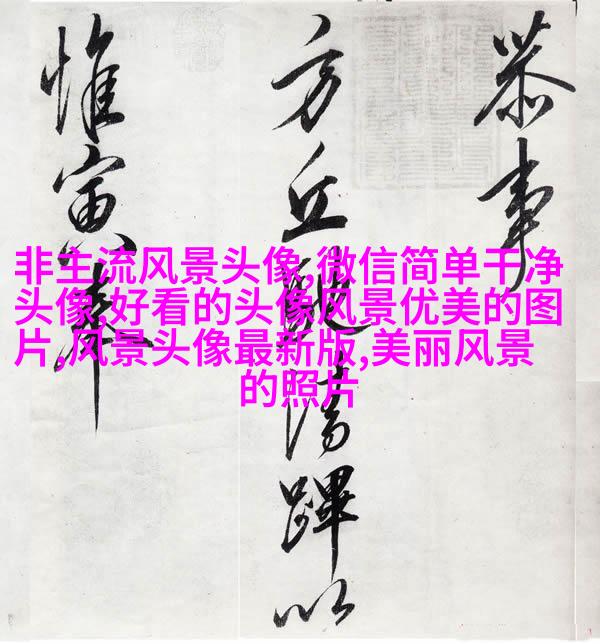 非主流风景头像,微信简单干净
头像,好看的头像风景优美的图
片,风景头像最新版,美丽风景
的照片
恭事
方丘清蹕以
惟寅奉